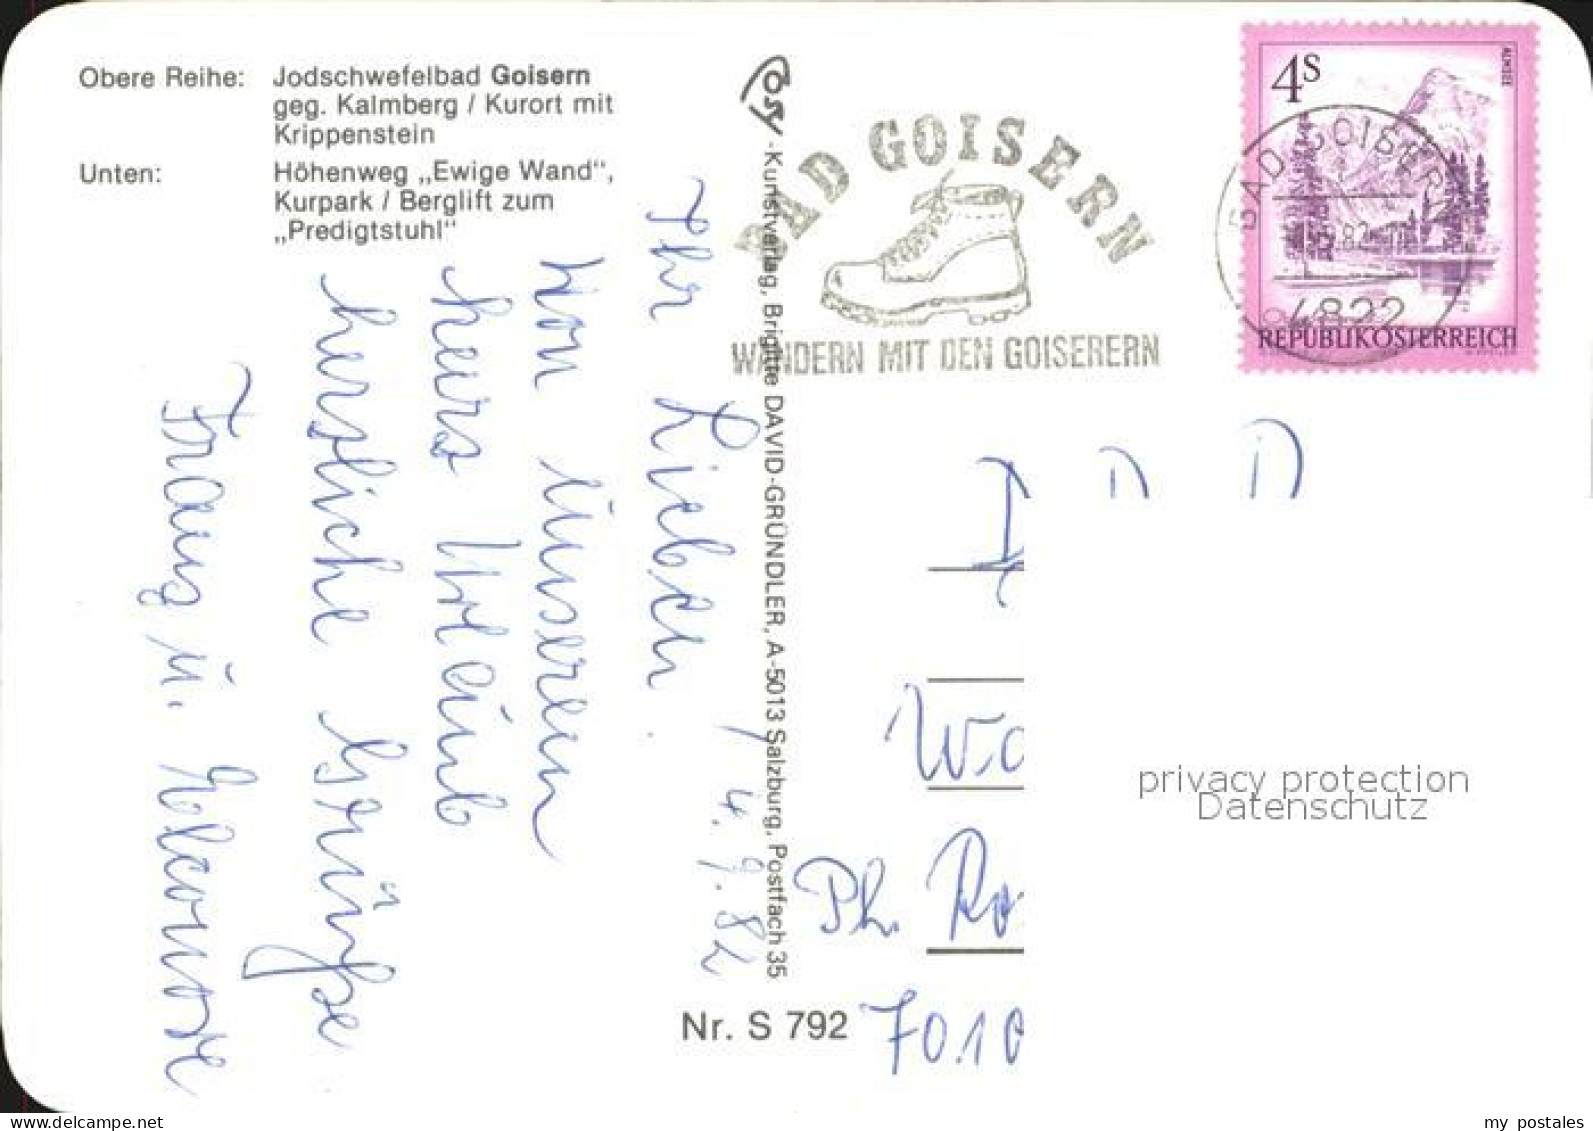 Obere Reihe: Jodschwefelbad Goisern
geg. Kalmberg / Kurort mit
Krippenstein
Unten: Höhenweg „Ewige Wand“,
Kurpark / Berglift zum
„Predigtstuhl“
Cosy-Kunstverlag, Brigitte DAVID-GRÜNDLER, A-5013 Salzburg, Postfach 35
Nr. S 792
BAD GOISERN
WANDERN MIT DEN GOISERERN
4S
ALMSEE
REPUBLIK ÖSTERREICH
BAD GOISERN
4822
4.9.82
Ihr Lieben
Von unserem
Kurz Urlaub
herzliche Grüße
Franz u. Eleonore
Ph.
7010
privacy protection
Datenschutz
my postales